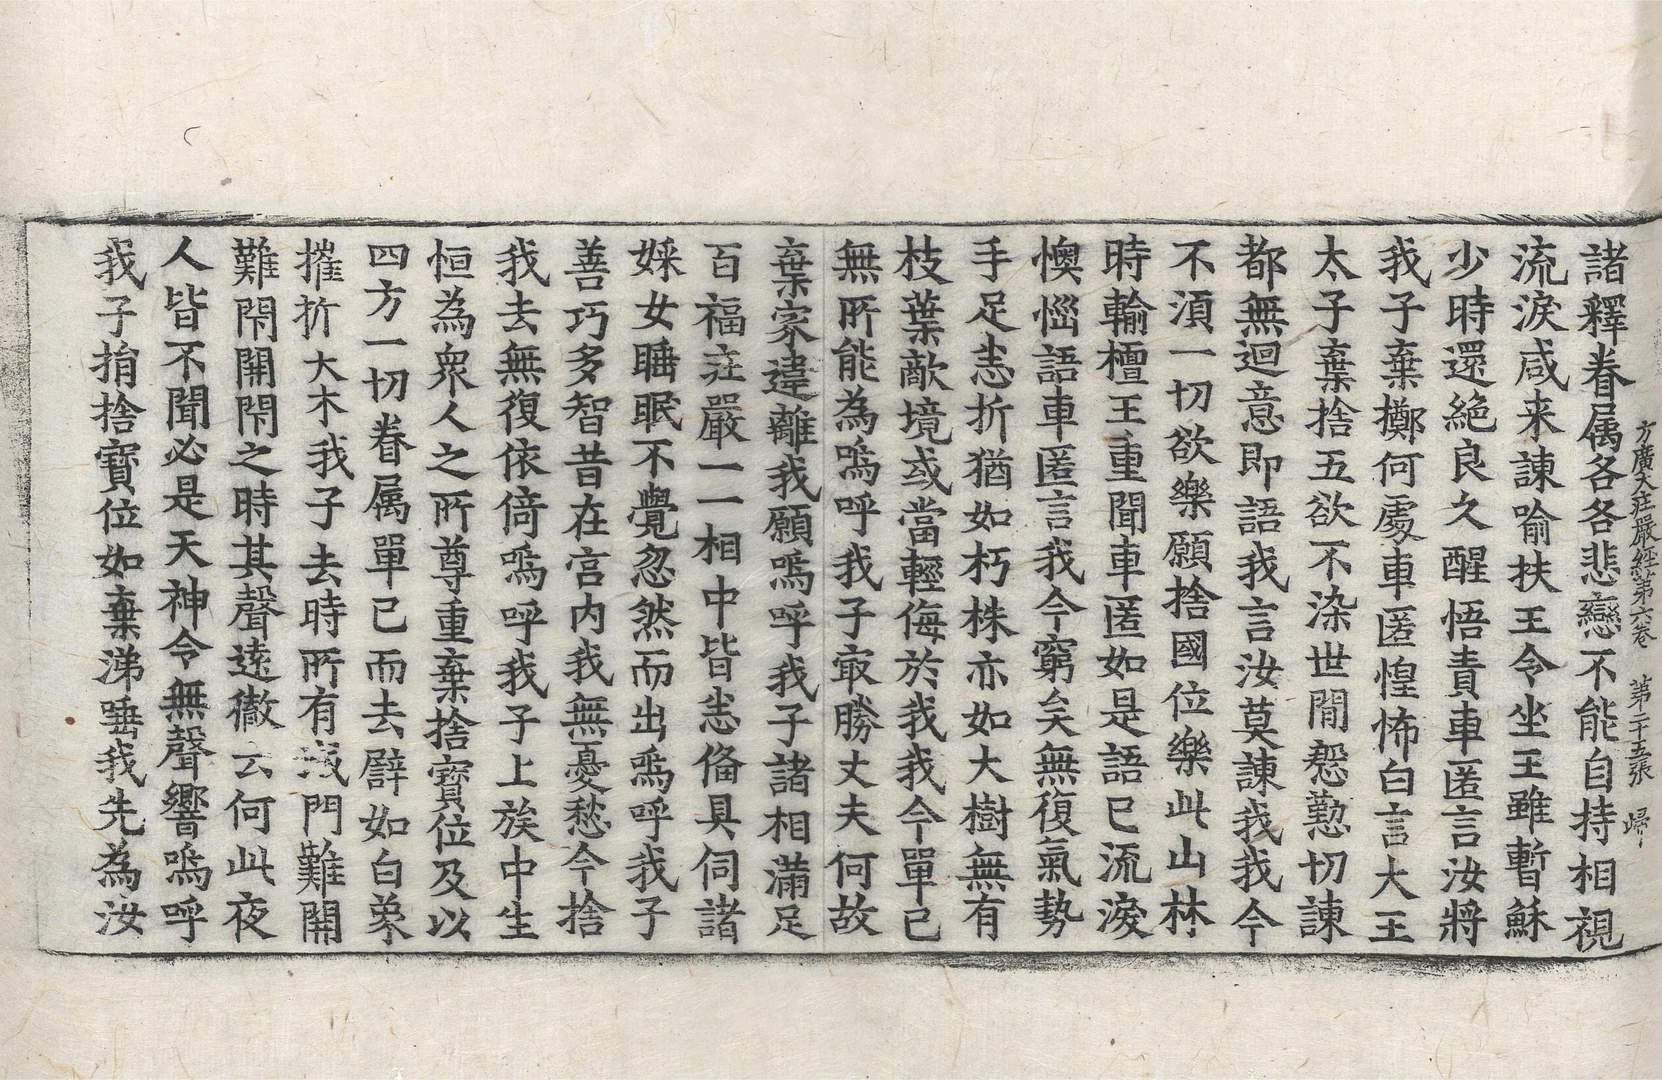 方廣大莊嚴經第六卷 第二十五張 歸
諸釋眷属各各悲戀不能自持相視
流淚咸来諫喻扶王令坐王雖暫穌
少時還絶良久醒悟責車匿言汝將
我子棄擲何處車匿惶怖白言大王
太子棄捨五欲不染世間慇懃切諫
都無迴意即語我言汝莫諫我我今
不湏一切欲樂願捨國位樂此山林
時輸檀王重聞車匿如是語已流淚
懊惱語車匿言我今窮矣無復氣勢
手足恚折猶如朽株亦如大樹無有
枝葉敵境或當輕侮於我我今單已
無所能為嗚呼我子㝡勝丈夫何故
棄家違離我願嗚呼我子諸相滿足
百福莊嚴一一相中皆恚俻具伺諸
婇女睡眠不覺忽然而出嗚呼我子
善巧多智昔在宫内我無憂愁今捨
我去無復依倚嗚呼我子上族中生
恒為衆人之所尊重棄捨寶位及以
四方一切眷属單已而去譬如白象
摧折大木我子去時所有城門難開
難閇開閇之時其聲遠徹云何此夜
人皆不聞必是天神令無聲響嗚呼
我子捐捨寶位如棄涕唾我先為汝